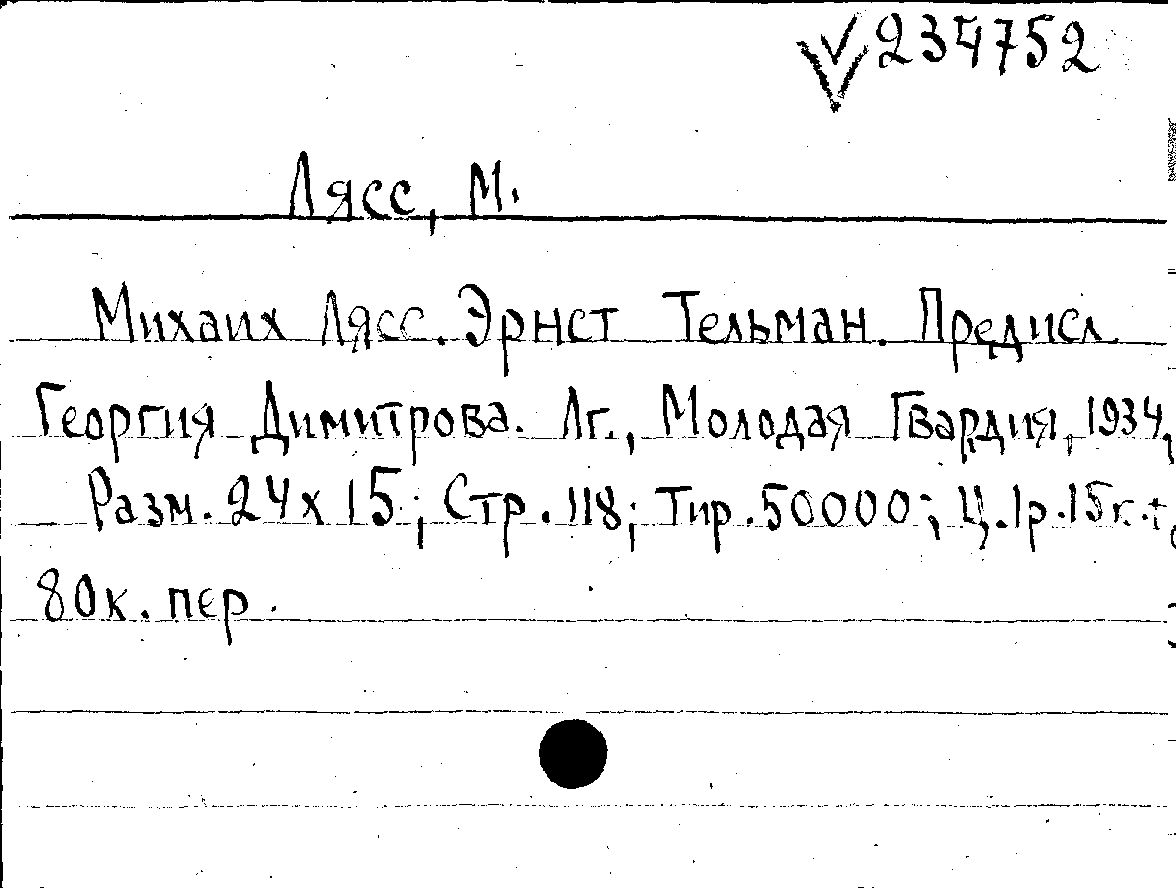 √234752
Лясс, М.
Михаих Лясс. Эрнст Тельман. Предисл.
Георгия Димитрова. Лг., Молодая Гвардия, 1934,
Разм. 24х15; Стр. 118; Тир. 50000; Ц. 1р. 15к. +
80к. пер.